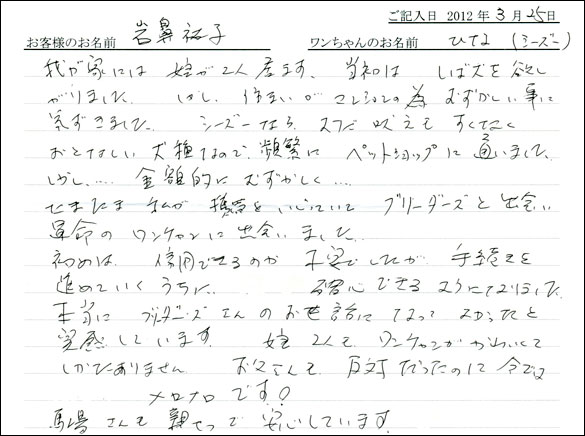 ご記入日 2012年3月25日
お客様のお名前 岩鼻祐子 ワンちゃんのお名前 ひな (シーズー)
我が家には 娘が2人居ます、 当初は しば犬を欲し
がりました。 しかし、住まいが マンションの為 むずかしい事に
気ずきました。 シーズーなら、 ムダ吠えも すくなく
おとなしい犬種なので、頻繁に ペットショップに通いました。
しかし…… 金額的に むずかしく…
たまたま 私が 携帯を いじっていて ブリーダーズと出会い
運命の ワンチャンに 出会いました。
初めは、 信用できるのか 不安でしたが 手続きを
進めていくうちに、 安心できる ようになりました。
本当に ブリーダーズさんのお世話に なって よかったと
実感しています。 娘2人も ワンチャンが かわいくて
しかたありません お父さんも 反対だったのに 今では
メロメロです!
馬場さんも 親切で 安心しています。